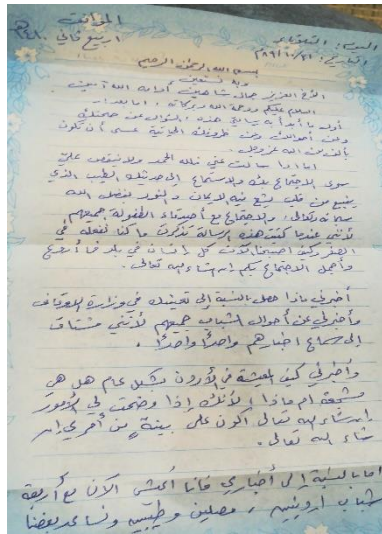 اليوم: الثلاثاء الموافق
التاريخ: ٣١/١٠/٨٩ ١ ربيع ثاني ١٤١٠هـ
بسم الله الرحمن الرحيم
وبه نستعين
الأخ العزيز جمال شاهين أمانه الله آمين
السلام عليكم ورحمة الله وبركاته، أما بعد:
أود يا أخي أن رسالتي هذه، السؤال عن صحتك
وعن أحوالك وعن ظروفك الحياتية عسى أن تكون
بألف خير من الله عز وجل.
أما إذا سألت عني فلله الحمد ولا ينقصني
سوى الاجتماع بك والاستماع إلى حديثك الطيب الذي
ينبع من قلب يشع فيه الإيمان والنور بفضل الله
سبحانه وتعالى، والاجتماع مع أصدقاء الطفولة جميعهم
لأنني عندما كتبت هذه الرسالة تذكرت ما كنا نفعله في
الصغر وكيف أصبحنا الآن كل إنسان في بلد فما أروع
وأجمل الاجتماع بكم إن شاء الله تعالى.
أخبرني ماذا حصل بالنسبة إلى تعيينك في وزارة الأوقاف
وأخبرني عن أحوال الشباب جميعهم لأنني مشتاق
إلى سماع أخبارهم واحداً واحداً.
وأخبرني كيف المعيشة في الأردن بشكل عام هل هي
مشجعة أم ماذا؟ لأنك إذا وضحت لي الأمور
إن شاء الله تعالى أكون على بينة من أمري إن
شاء الله تعالى.
أما بالنسبة إلى أخباري فأنا أعيش الآن مع أربعة
شباب أردنيين، مصلين وطيبين ونساعد بعضنا